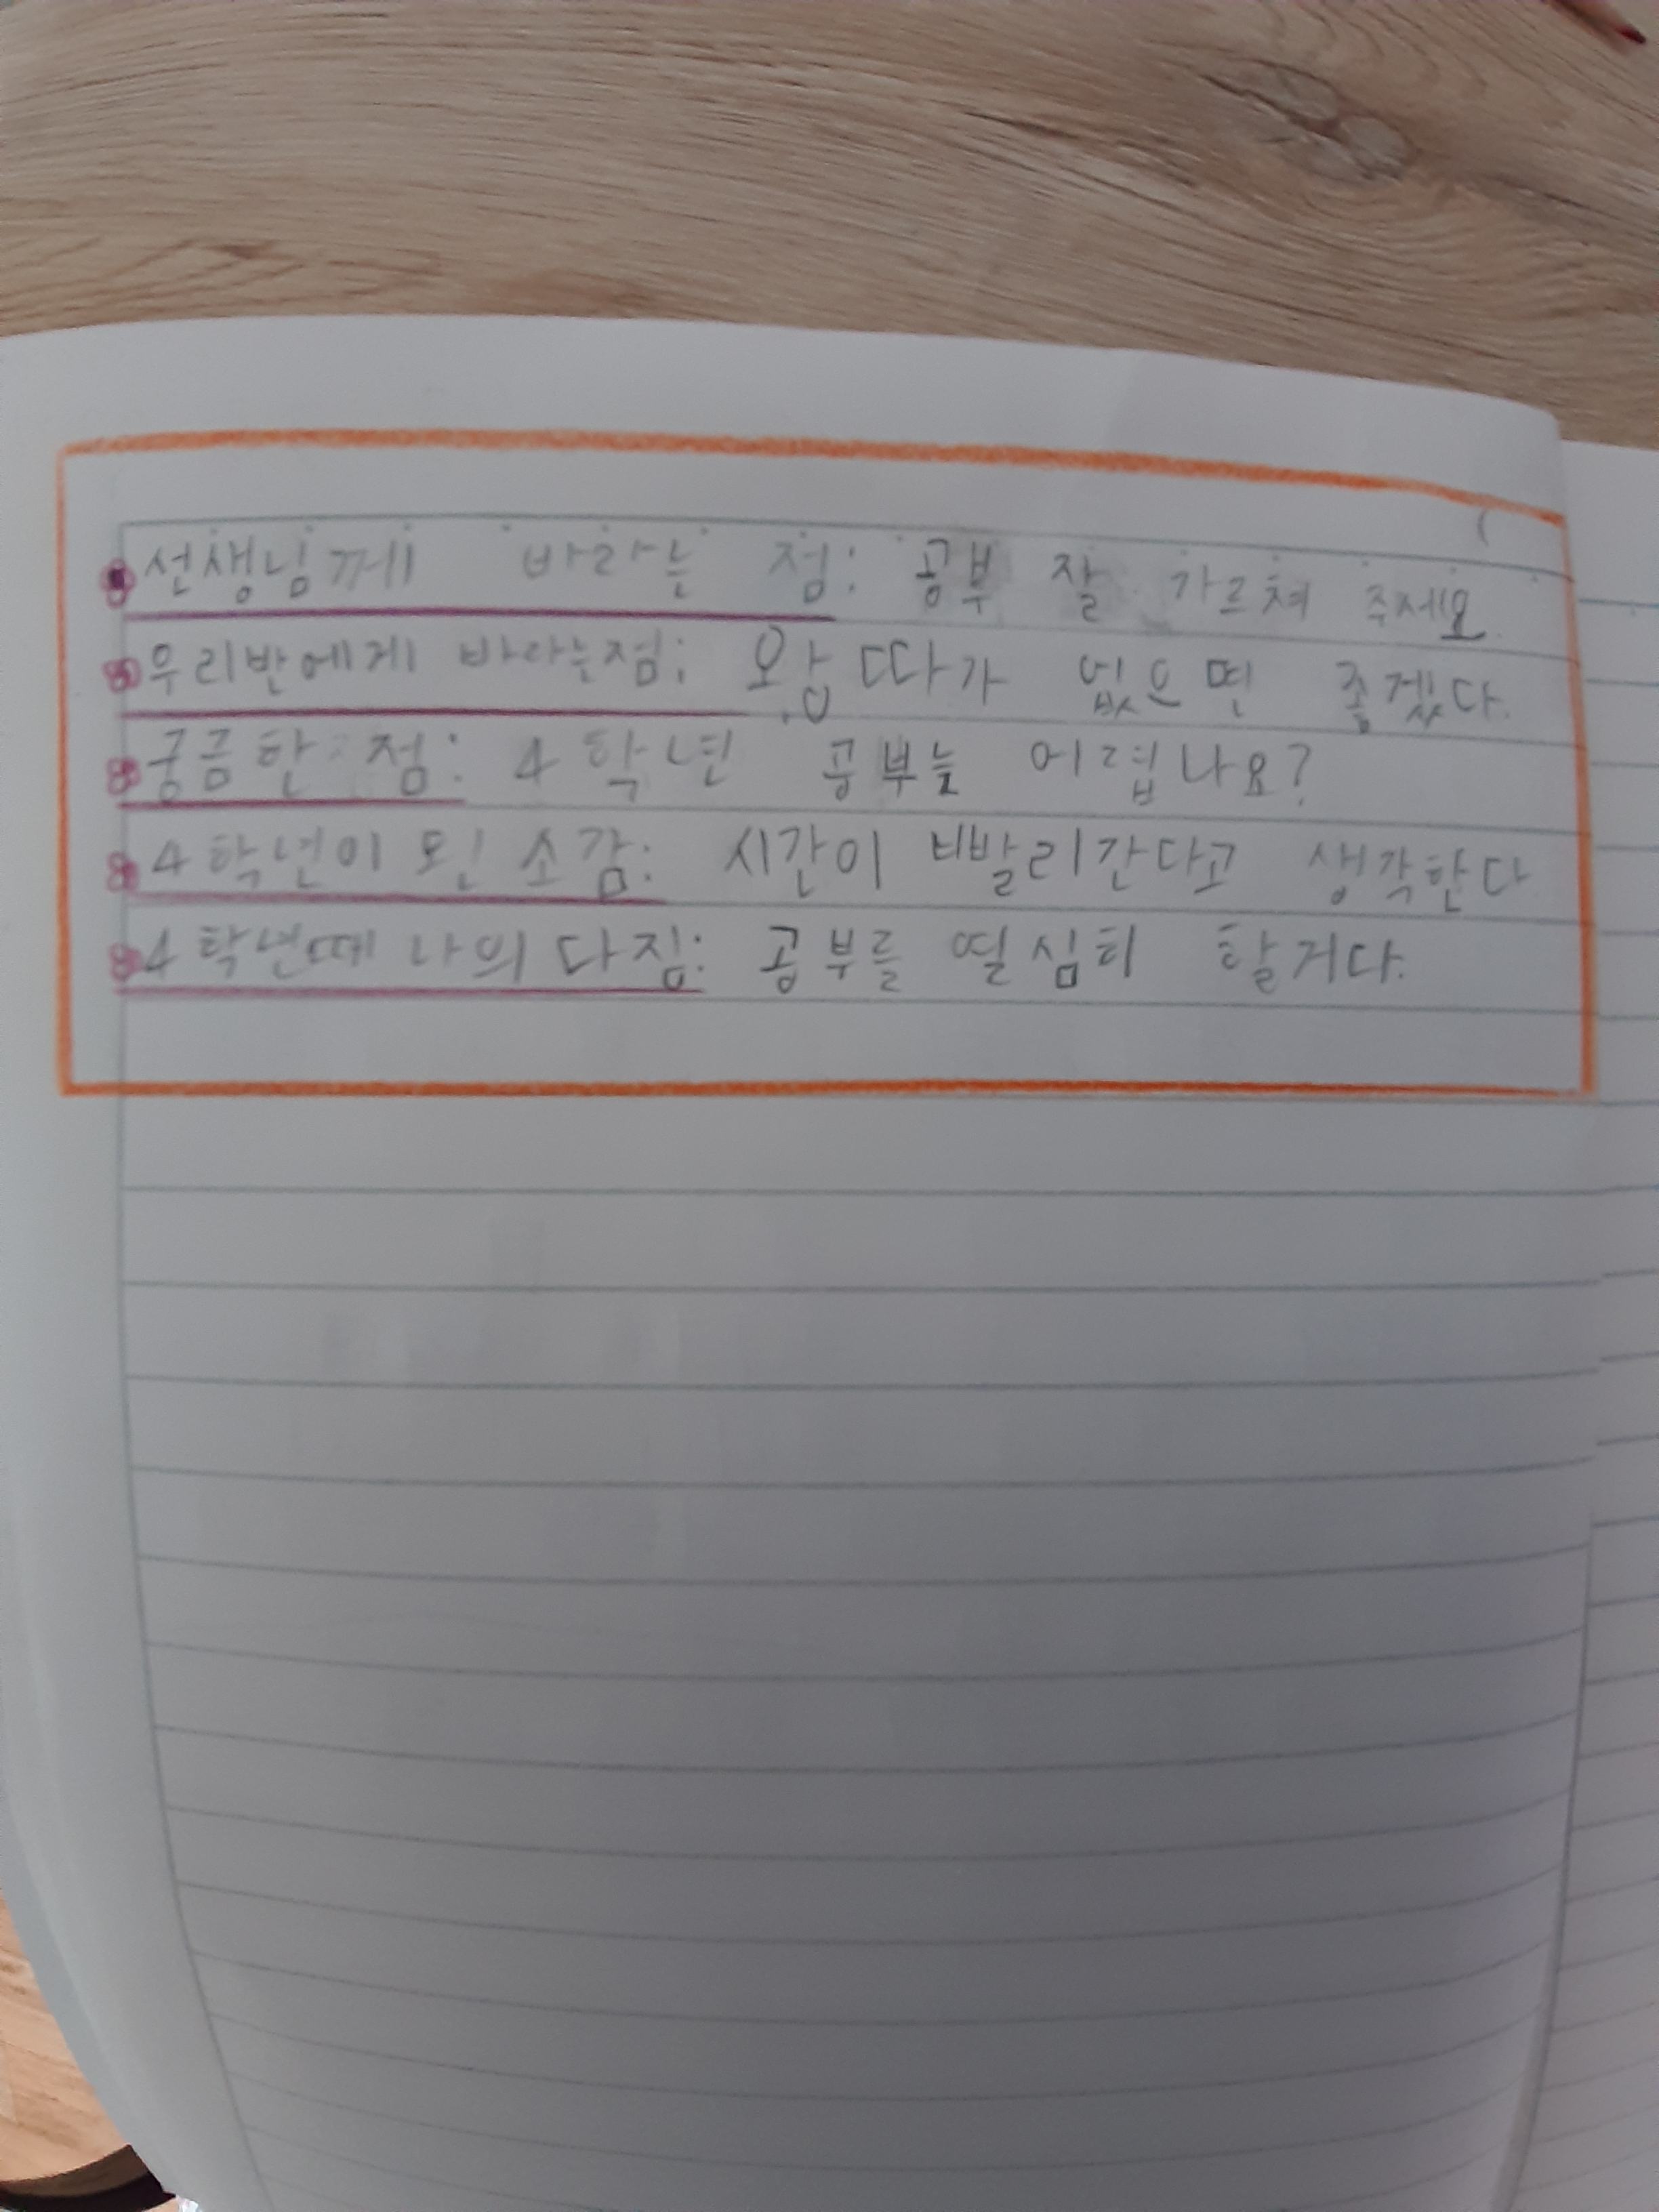 선생님께 바라는 점: 공부 잘 가르쳐 주세요.
우리반에게 바라는점: 왕따가 없으면 좋겠다.
궁금한 점: 4학년 공부는 어렵나요?
4학년이 된 소감: 시간이 빨리간다고 생각한다
4학년때 나의 다짐: 공부를 열심히 할거다.